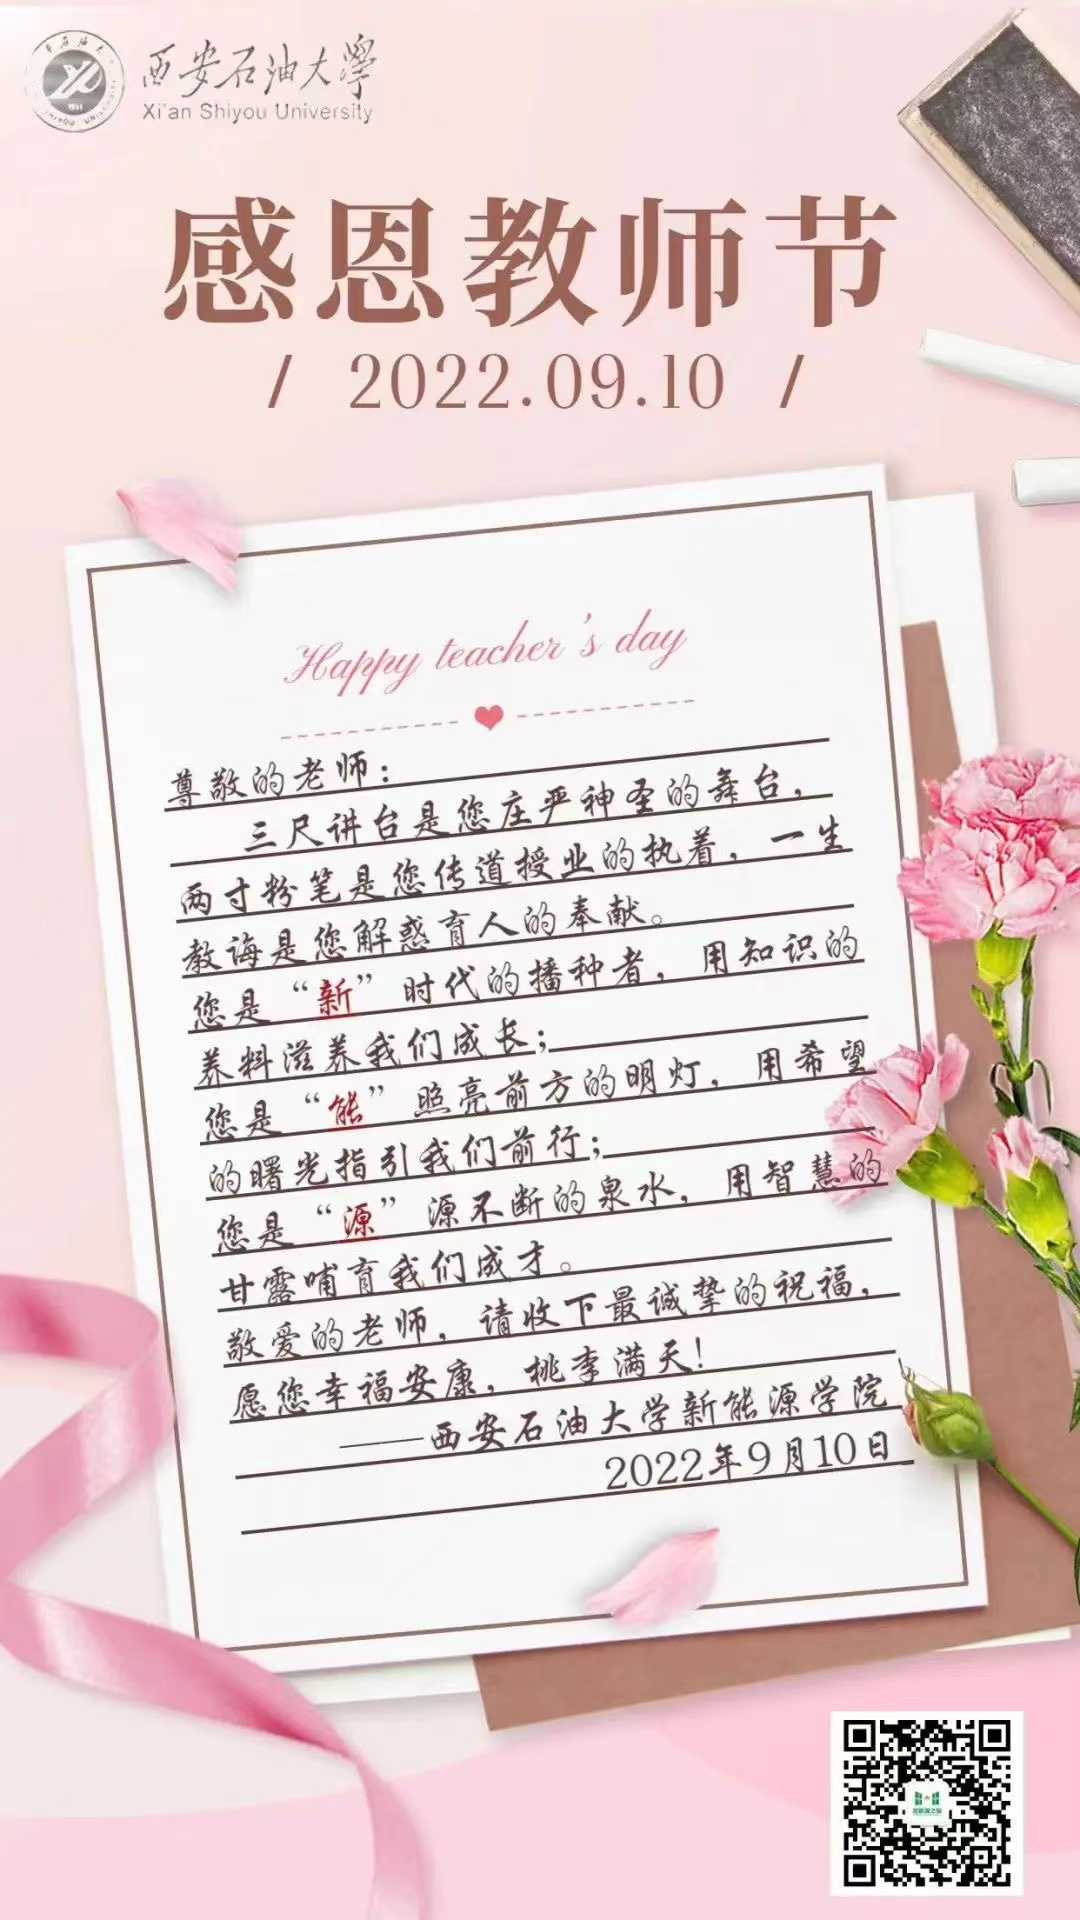 西安石油大学
Xi'an Shiyou University
感恩教师节
/ 2022.09.10 /
Happy teacher's day
尊敬的老师：
三尺讲台是您庄严神圣的舞台，
两寸粉笔是您传道授业的执着，一生
教诲是您解惑育人的奉献。
您是“新”时代的播种者，用知识的
养料滋养我们成长；
您是“能”照亮前方的明灯，用希望
的曙光指引我们前行；
您是“源”源不断的泉水，用智慧的
甘露哺育我们成才。
敬爱的老师，请收下最诚挚的祝福，
愿您幸福安康，桃李满天！
——西安石油大学新能源学院
2022年9月10日